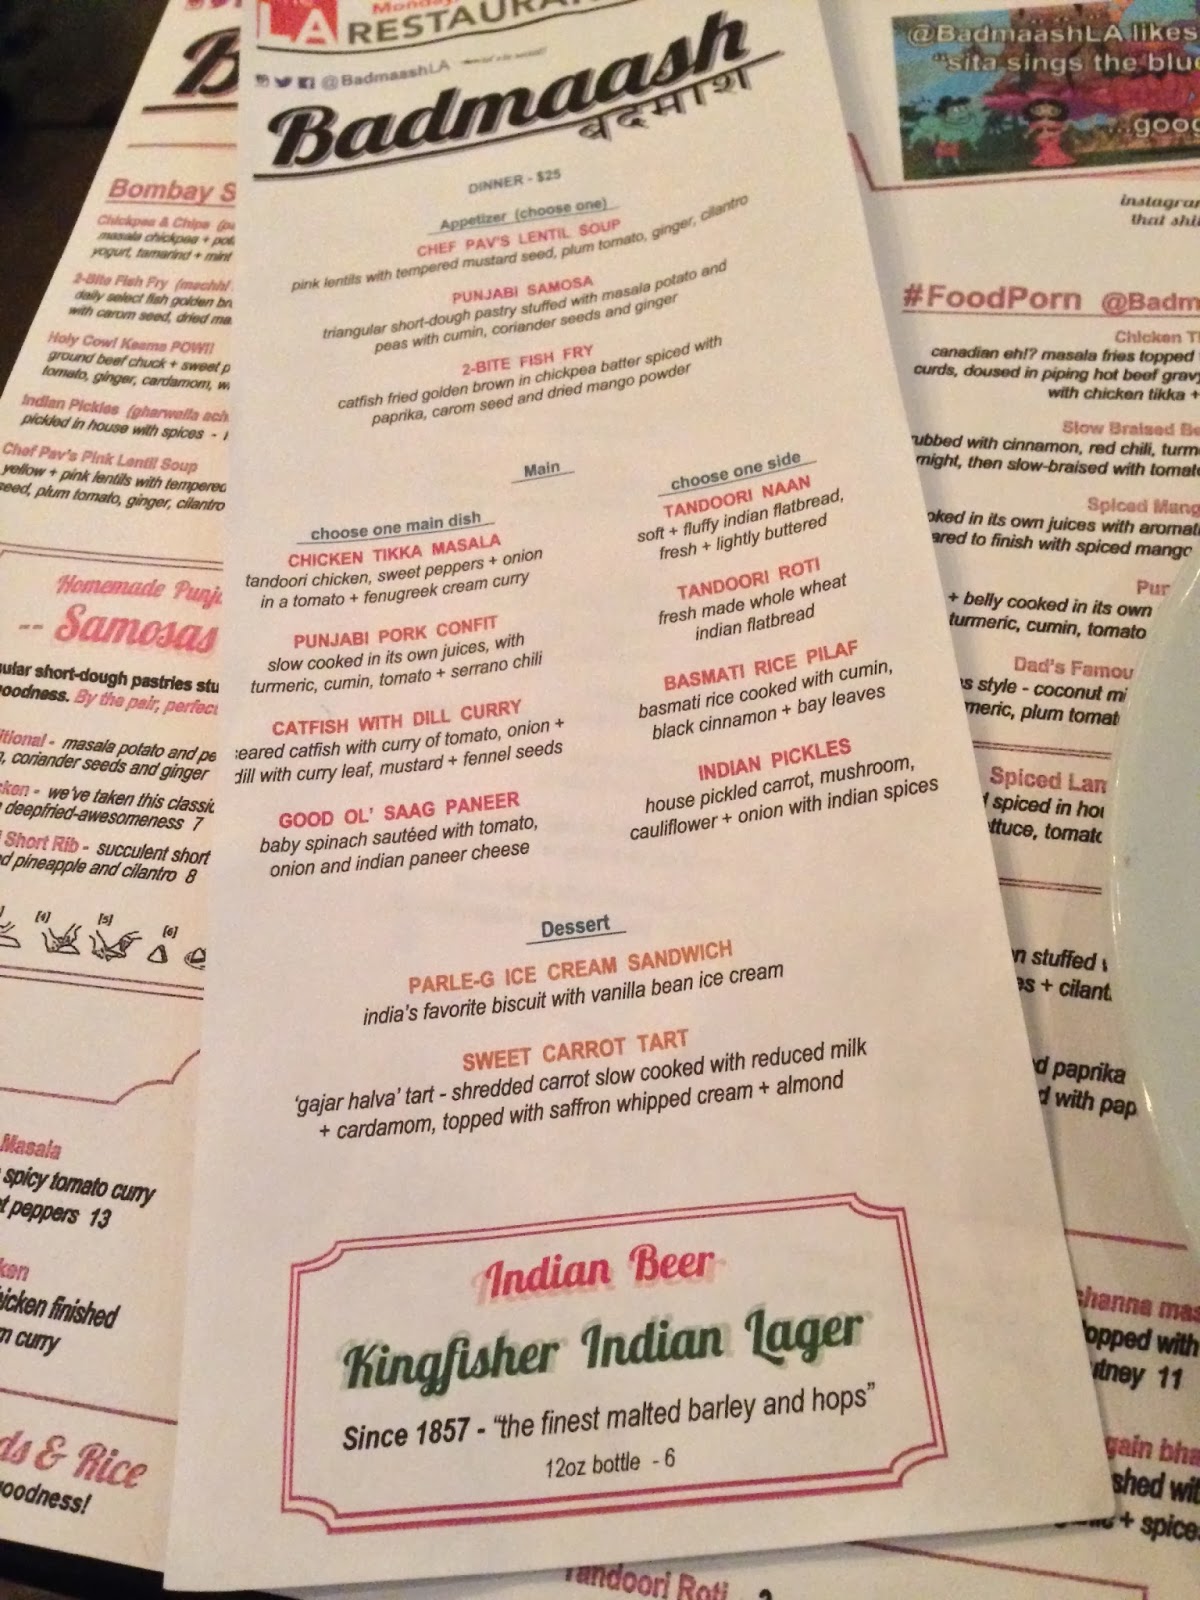 LA RESTAURAN
@BadmaashLA
Badmaash
बदमाश
DINNER - $25
Appetizer (choose one)
CHEF PAV'S LENTIL SOUP
pink lentils with tempered mustard seed, plum tomato, ginger, cilantro
PUNJABI SAMOSA
triangular short-dough pastry stuffed with masala potato and
peas with cumin, coriander seeds and ginger
2-BITE FISH FRY
catfish fried golden brown in chickpea batter spiced with
paprika, carom seed and dried mango powder
Main
choose one main dish
CHICKEN TIKKA MASALA
tandoori chicken, sweet peppers + onion
in a tomato + fenugreek cream curry
PUNJABI PORK CONFIT
slow cooked in its own juices, with
turmeric, cumin, tomato + serrano chili
CATFISH WITH DILL CURRY
seared catfish with curry of tomato, onion +
dill with curry leaf, mustard + fennel seeds
GOOD OL' SAAG PANEER
baby spinach sautéed with tomato,
onion and indian paneer cheese
choose one side
TANDOORI NAAN
soft + fluffy indian flatbread,
fresh + lightly buttered
TANDOORI ROTI
fresh made whole wheat
indian flatbread
BASMATI RICE PILAF
basmati rice cooked with cumin,
black cinnamon + bay leaves
INDIAN PICKLES
house pickled carrot, mushroom,
cauliflower + onion with indian spices
Dessert
PARLE-G ICE CREAM SANDWICH
india's favorite biscuit with vanilla bean ice cream
SWEET CARROT TART
'gajar halva' tart - shredded carrot slow cooked with reduced milk
+ cardamom, topped with saffron whipped cream + almond
Indian Beer
Kingfisher Indian Lager
Since 1857 - "the finest malted barley and hops"
12oz bottle - 6
B
Bombay S
Chickpea & Chips
masala chickpea +
yogurt, tamarind + mint
2-Bite Fish Fry
daily select fish golden
with carom seed, dried
Holy Cow! Keema POW!!
ground beef chuck + sweet
tomato, ginger, cardamom,
Indian Pickles (gharwella
pickled in house with spices -
Chef Pav's Pink Lentil Soup
yellow + pink lentils with tempered
seed, plum tomato, ginger, cilantro
Homemade Punj
-- Samosas
short-dough pastries
goodness. By the pair,
masala potato and
coriander seeds and ginger
we've taken this
deepfried-awesomeness 7
Short Rib - succulent short
pineapple and cilantro 8
[4] [5] [6]
Masala
spicy tomato curry
peppers 13
finished
curry
& Rice
goodness!
@BadmaashLA likes
"sita sings the
...good
instagram
that
#FoodPorn @Badm
Chicken
canadian eh!? masala fries topped
curds, doused in piping hot beef gravy
with chicken tikka +
Slow Braised
rubbed with cinnamon, red chili,
then slow-braised with
Spiced
cooked in its own juices with
to finish with spiced mango
+ belly cooked in its own
turmeric, cumin, tomato
Dad's
style - coconut
plum
Spiced
spiced in
lettuce,
stuffed
+
paprika
with
channa
topped with
chutney 11
with
+
Tandoori Roti